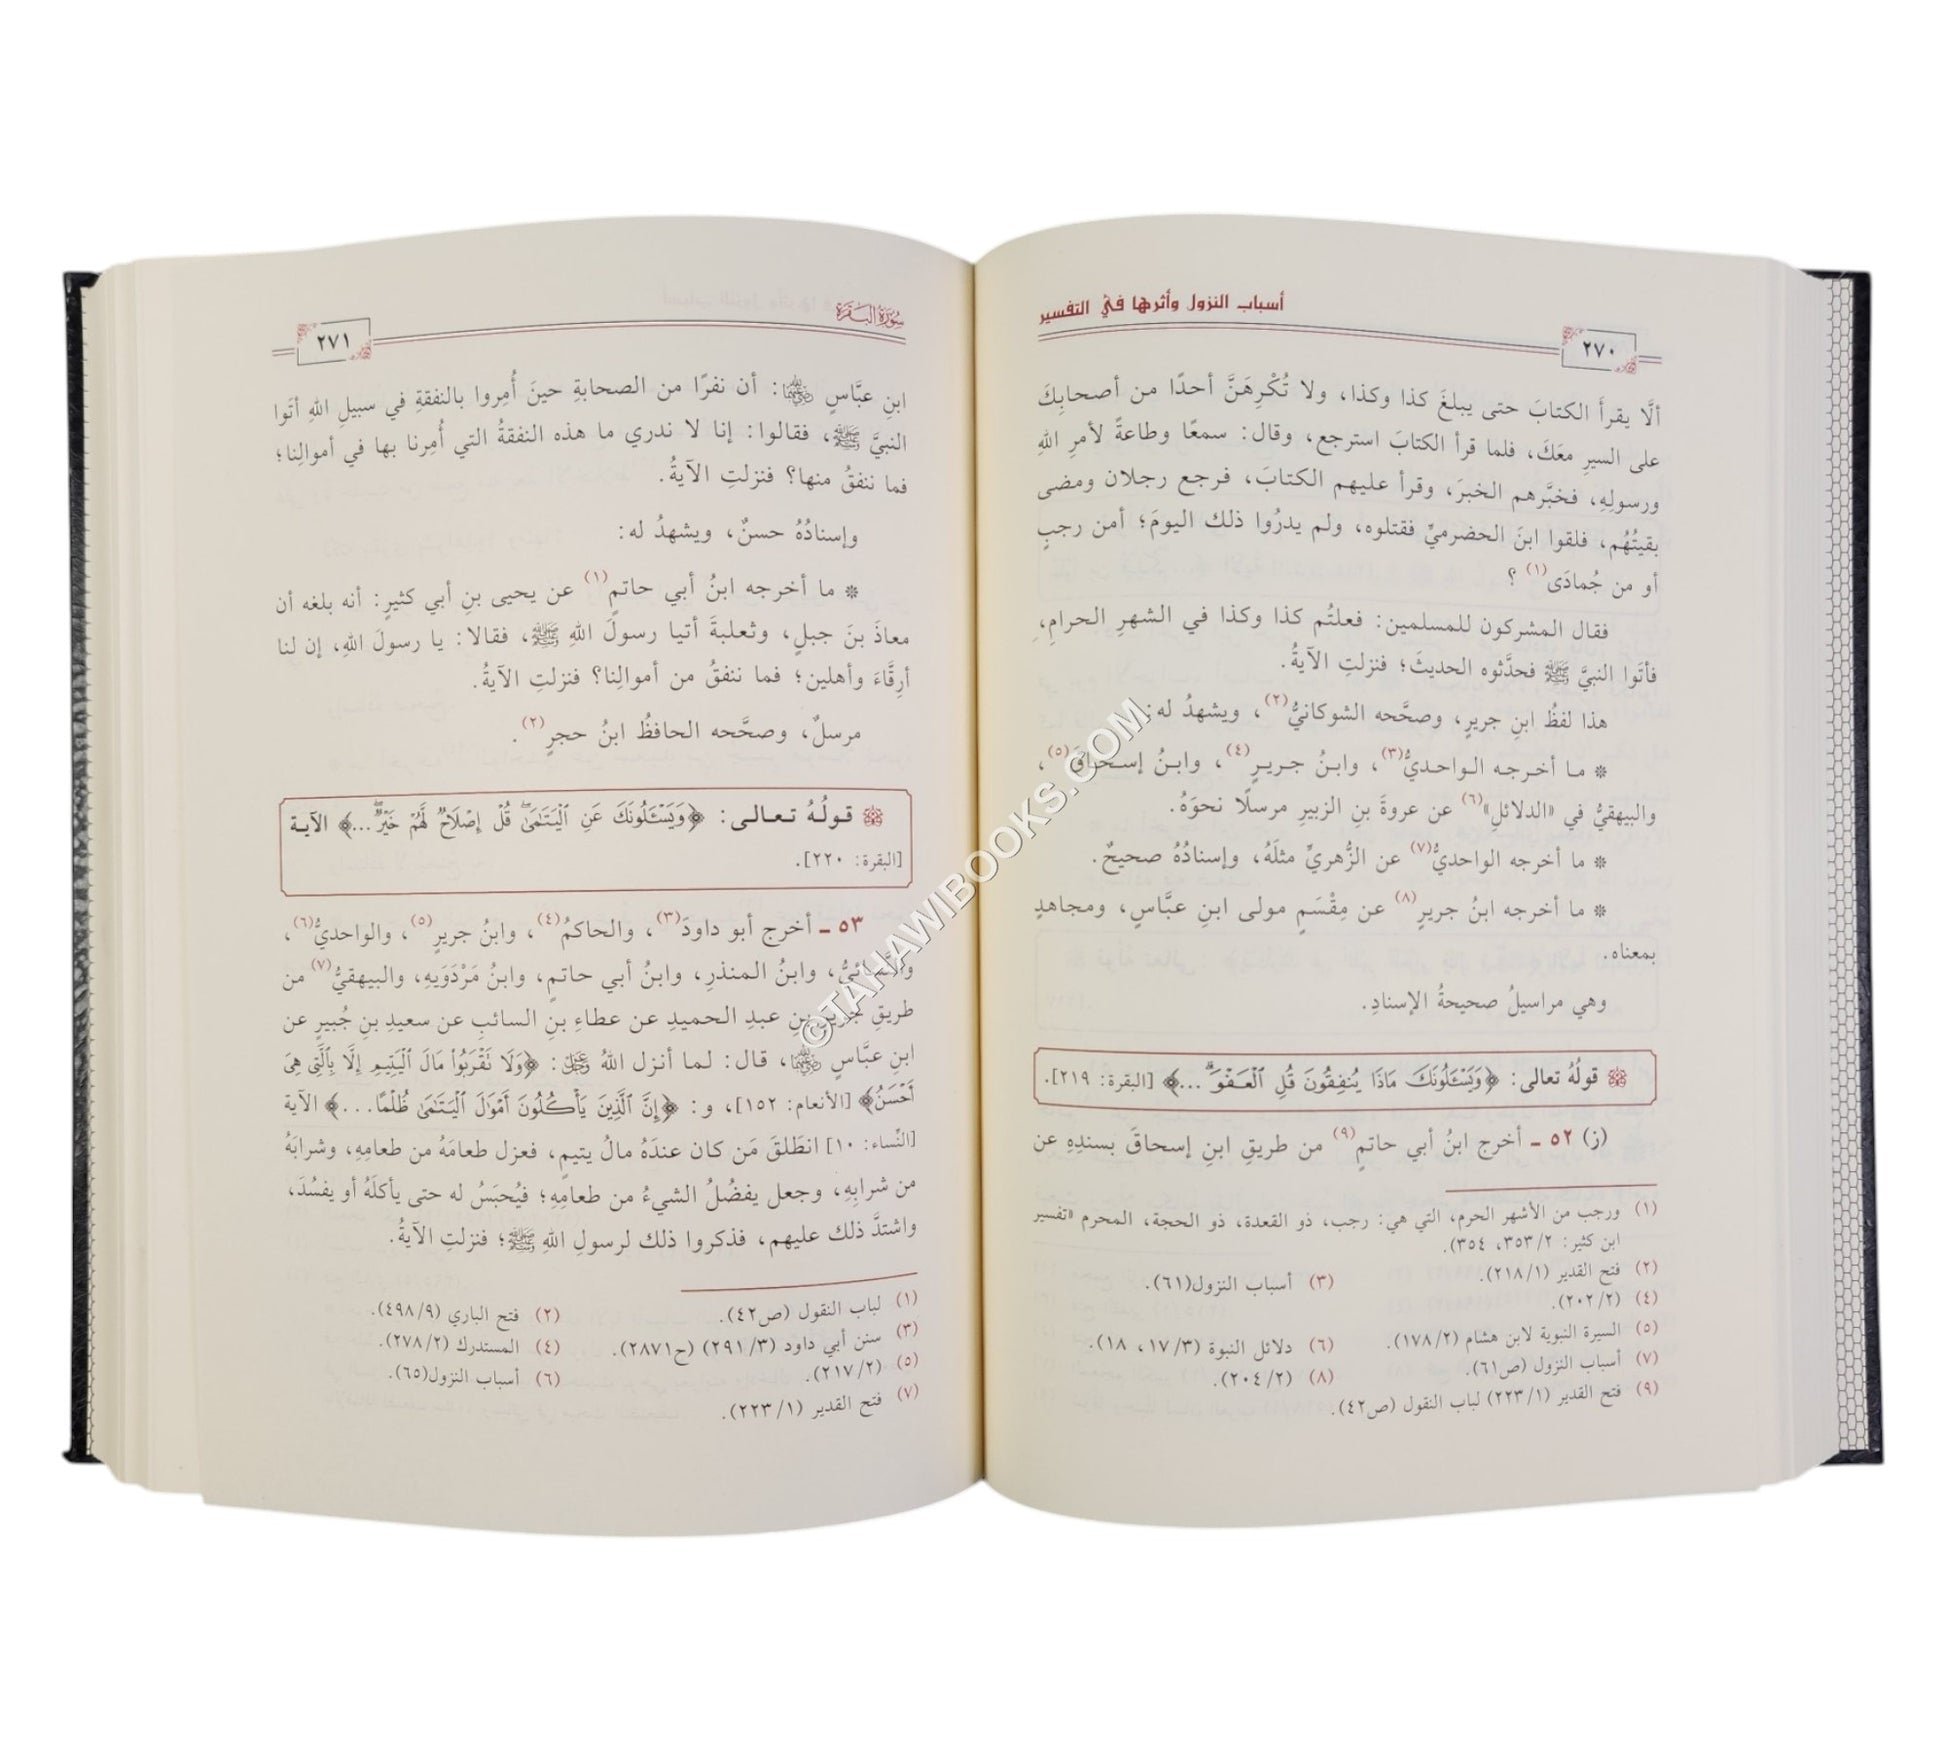 أسباب النزول وأثرها في التفسير
٢٧٠
ألَّا يقرأَ الكتابَ حتى يبلغَ كذا وكذا، ولا تُكْرِهَنَّ أحدًا من أصحابِكَ
على السيرِ معَكَ، فلما قرأ الكتابَ استرجع، وقال: سمعًا وطاعةً لأمرِ اللهِ
ورسولِهِ، فخبَّرهم الخبرَ، وقرأ عليهم الكتابَ، فرجع رجلان ومضى
بقيتُهُم، فلقوا ابنَ الحضرميِّ فقتلوه، ولم يدرُوا ذلك اليومَ؛ أمن رجبٍ
أو من جُمادَى(١) ؟
فقال المشركون للمسلمين: فعلتُم كذا وكذا في الشهرِ الحرامِ،
فأتَوا النبيَّ ﷺ فحدَّثوه الحديثَ؛ فنزلتِ الآيةُ.
هذا لفظُ ابنِ جريرٍ، وصحَّحه الشوكانيُّ(٢)، ويشهدُ له:
* ما أخرجه الواحديُّ(٣)، وابنُ جريرٍ(٤)، وابنُ إسحاقَ(٥)،
والبيهقيُّ في «الدلائلِ»(٦) عن عروةَ بنِ الزبيرِ مرسلًا نحوَهُ.
* ما أخرجه الواحديُّ(٧) عن الزُّهريِّ مثلَهُ، وإسنادُهُ صحيحٌ.
* ما أخرجه ابنُ جريرٍ(٨) عن مِقْسَمٍ مولى ابنِ عبَّاسٍ، ومجاهدٍ
بمعناه.
وهي مراسيلُ صحيحةُ الإسنادِ.
قولُهُ تعالى: ﴿وَيَسْـَٔلُونَكَ مَاذَا يُنفِقُونَ قُلِ ٱلْعَفْوَۗ ...﴾ [البقرة: ٢١٩].
(ز) ٥٢ ـ أخرج ابنُ أبي حاتمٍ(٩) من طريقِ ابنِ إسحاقَ بسندِهِ عن
(١) ورجب من الأشهر الحرم، التي هي: رجب، ذو القعدة، ذو الحجة، المحرم «تفسير
ابن كثير: ٢/ ٣٥٣، ٣٥٤).
(٢) فتح القدير (١/ ٢١٨). (٣) أسباب النزول(٦١).
(٤) (٢/ ٢٠٢).
(٥) السيرة النبوية لابن هشام (٢/ ١٧٨). (٦) دلائل النبوة (٣/ ١٧، ١٨).
(٧) أسباب النزول (ص٦١). (٨) (٢/ ٢٠٤).
(٩) فتح القدير (١/ ٢٢٣) لباب النقول (ص٤٢).
سُورَةُ البَقَرَةِ
٢٧١
ابنِ عبَّاسٍ رضي الله عنهما: أن نفرًا من الصحابةِ حينَ أُمِروا بالنفقةِ في سبيلِ اللهِ أتَوا
النبيَّ ﷺ، فقالوا: إنا لا ندري ما هذه النفقةُ التي أُمِرنا بها في أموالِنا؛
فما ننفقُ منها؟ فنزلتِ الآيةُ.
وإسنادُهُ حسنٌ، ويشهدُ له:
* ما أخرجه ابنُ أبي حاتمٍ(١) عن يحيى بنِ أبي كثيرٍ: أنه بلغه أن
معاذَ بنَ جبلٍ، وثعلبةَ أتيا رسولَ اللهِ ﷺ، فقالا: يا رسولَ اللهِ، إن لنا
أرِقَّاءَ وأهلين؛ فما ننفقُ من أموالِنا؟ فنزلتِ الآيةُ.
مرسلٌ، وصحَّحه الحافظُ ابنُ حجرٍ(٢).
قولُهُ تعالى: ﴿وَيَسْـَٔلُونَكَ عَنِ ٱلْيَتَـٰمَىٰۖ قُلْ إِصْلَاحٌ لَّهُمْ خَيْرٌۖ ...﴾ الآية
[البقرة: ٢٢٠].
٥٣ ـ أخرج أبو داودَ(٣)، والحاكمُ(٤)، وابنُ جريرٍ(٥)، والواحديُّ(٦)،
والنَّسائيُّ، وابنُ المنذرِ، وابنُ أبي حاتمٍ، وابنُ مَرْدَوَيهِ، والبيهقيُّ(٧) من
طريقِ جريرِ بنِ عبدِ الحميدِ عن عطاءِ بنِ السائبِ عن سعيدِ بنِ جُبيرٍ عن
ابنِ عبَّاسٍ رضي الله عنهما، قال: لما أنزل اللهُ عز وجل: ﴿وَلَا تَقْرَبُوا۟ مَالَ ٱلْيَتِيمِ إِلَّا بِٱلَّتِى هِىَ
أَحْسَنُ﴾ [الأنعام: ١٥٢]، و: ﴿إِنَّ ٱلَّذِينَ يَأْكُلُونَ أَمْوَٰلَ ٱلْيَتَـٰمَىٰ ظُلْمًا...﴾ الآية
[النِّساء: ١٠] انطَلقَ مَن كان عندَهُ مالُ يتيمٍ، فعزل طعامَهُ من طعامِهِ، وشرابَهُ
من شرابِهِ، وجعل يفضُلُ الشيءُ من طعامِهِ؛ فيُحبَسُ له حتى يأكلَهُ أو يفسُدَ،
واشتدَّ ذلك عليهم، فذكروا ذلك لرسولِ اللهِ ﷺ؛ فنزلتِ الآيةُ.
(١) لباب النقول (ص٤٢). (٢) فتح الباري (٩/ ٤٩٨).
(٣) سنن أبي داود (٣/ ٢٩١) (ح٢٨٧١). (٤) المستدرك (٢/ ٢٧٨).
(٥) (٢/ ٢١٧). (٦) أسباب النزول(٦٥).
(٧) فتح القدير (١/ ٢٢٣).
©TAHAWIBOOKS.COM